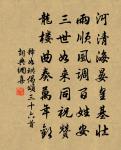 河清海晏皇基壯
雨順風調百姓安
三世如來同祝贊
龍樓曲奏萬年歡
釋如珙偈頌三十六首
詞典網